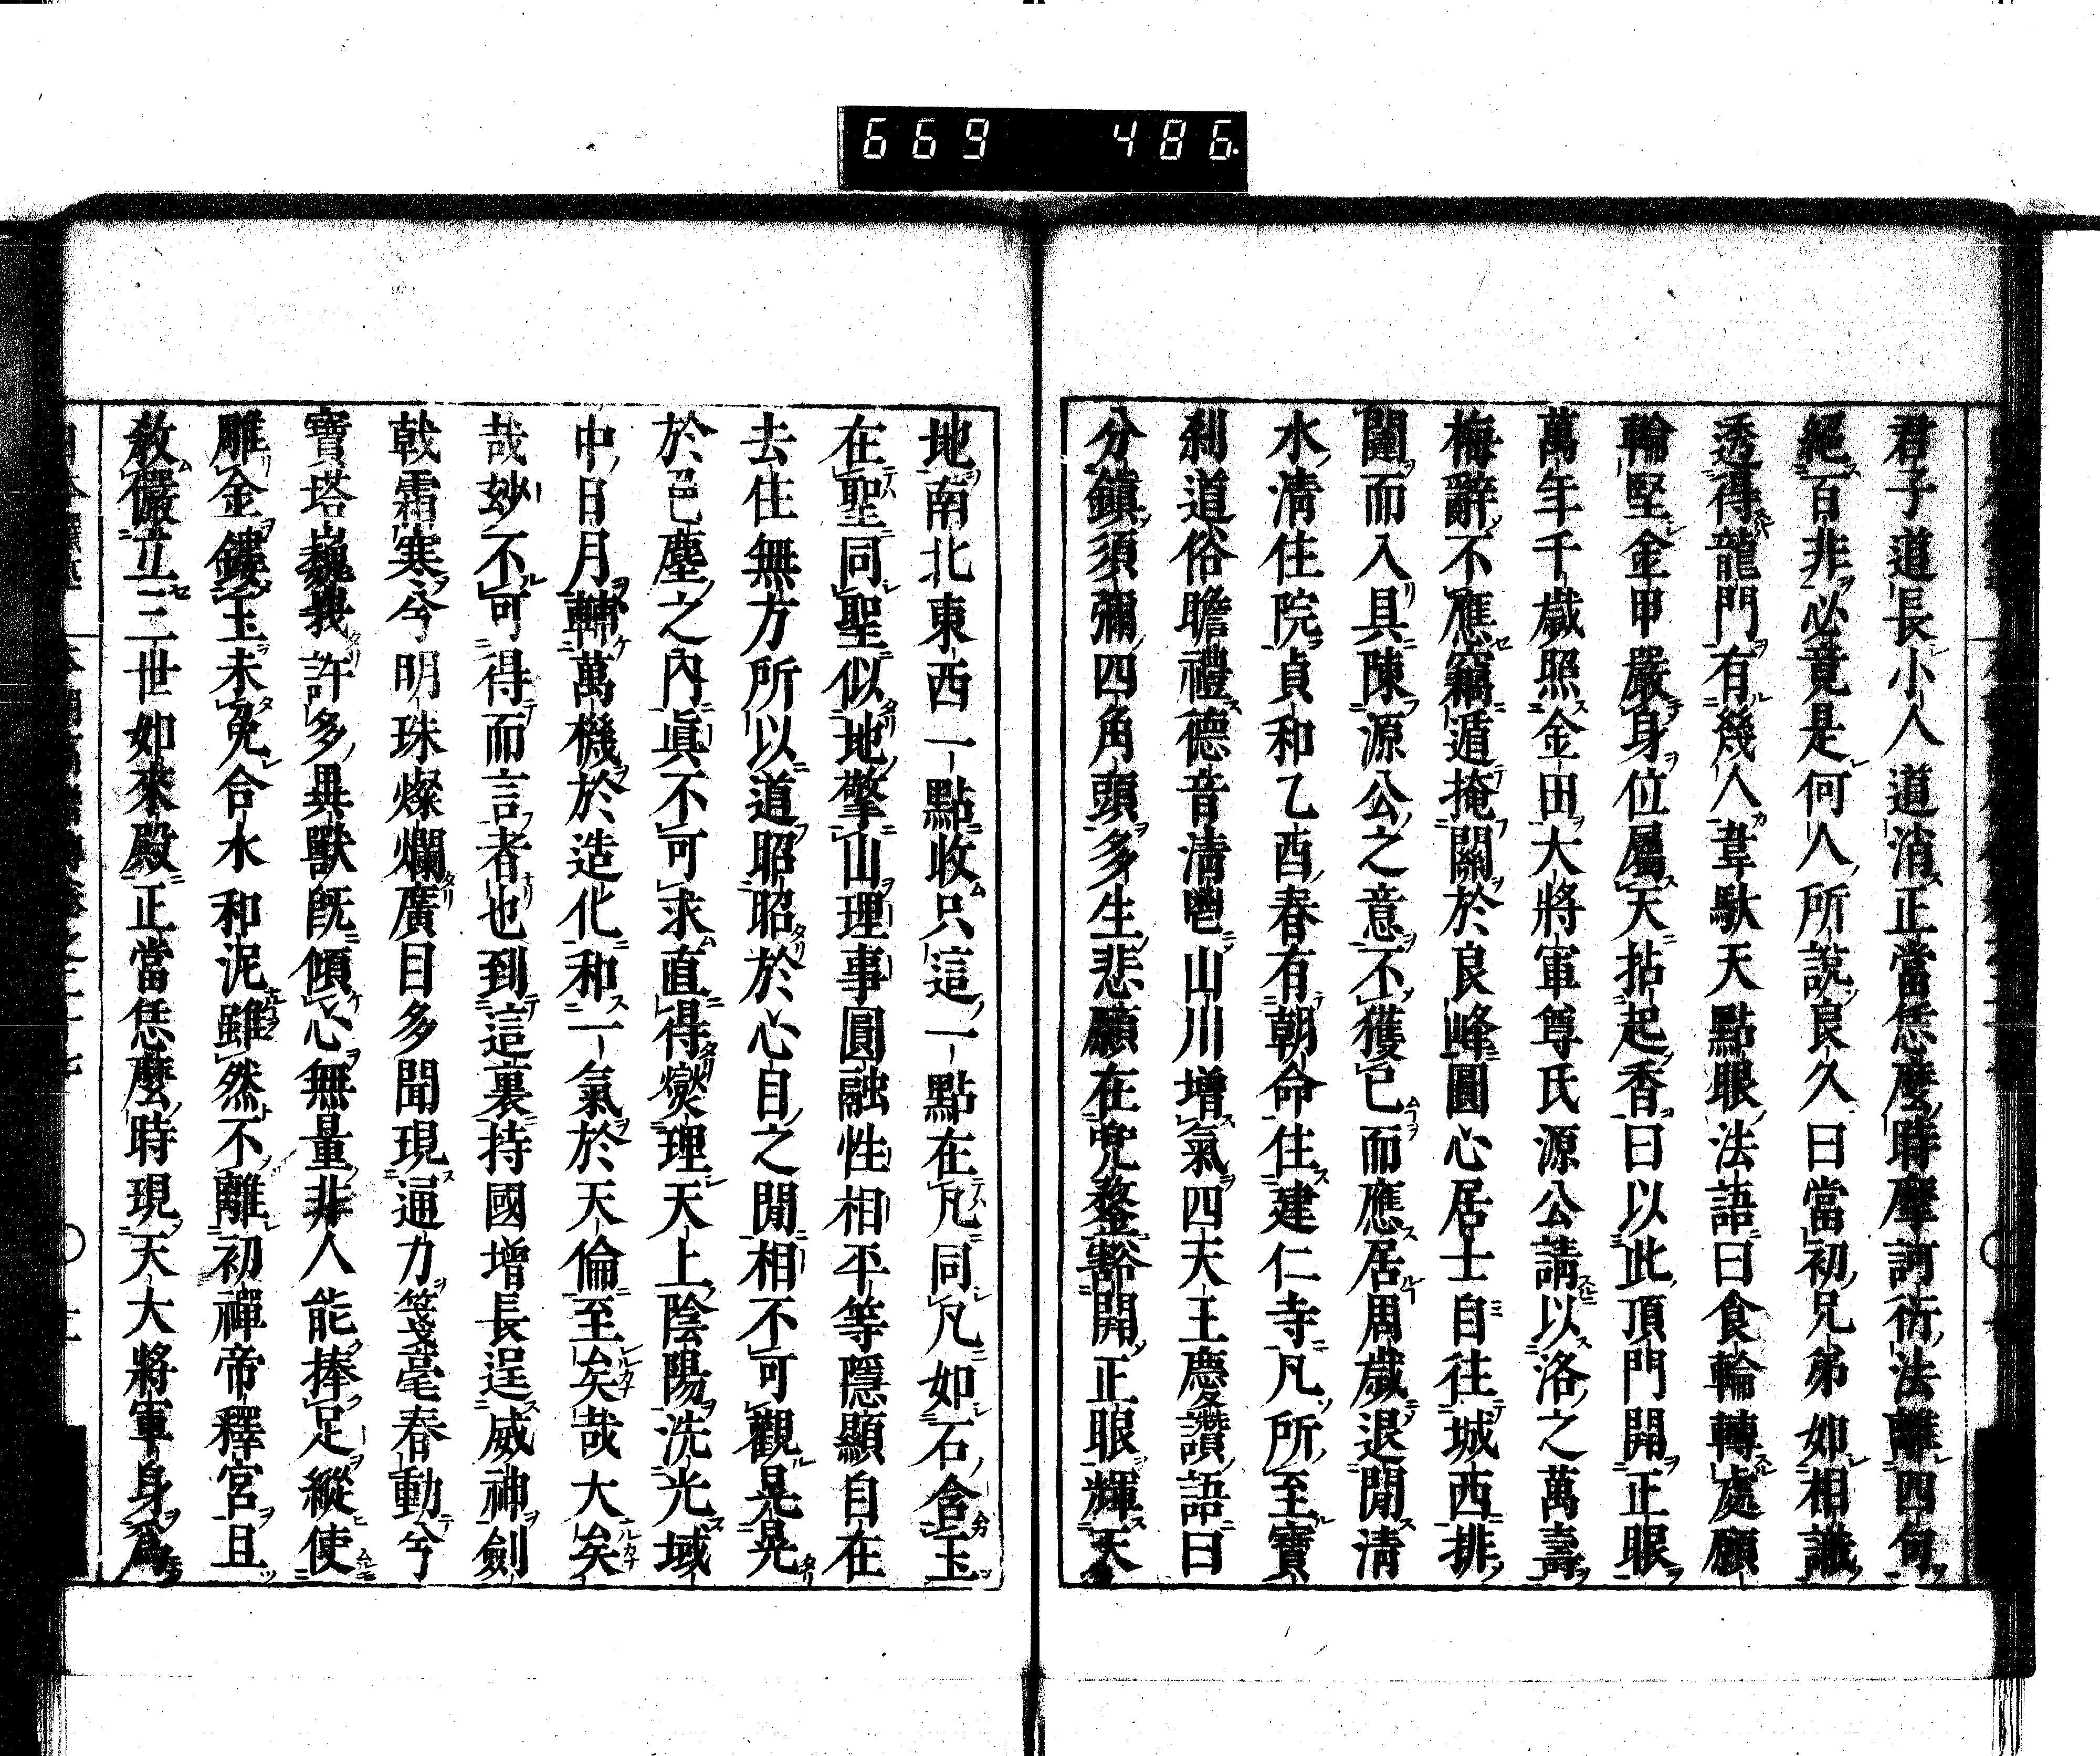 669 486
君子道長小人道消正當恁麼時摩訶衍法離四句
絕百非必竟是何人所說良久曰當初兄弟如相識
透得龍門有幾人韋馱天點眼法語曰食輪轉處願
輪堅金甲嚴身位屬天拈起香曰以此頂門開正眼
萬年千歲照金田大將軍尊氏源公請以洛之萬壽
梅辭不應竊遁掩關於良峰圓心居士自往城西排
闥而入具陳源公之意不獲已而應居周歲退閒清
水清住院貞和乙酉春有朝命住建仁寺凡所至寶
刹道俗瞻禮德音清鬯山川增氣四天王慶讚語曰
分鎮須彌四角頭多生悲願在兜鍪豁開正眼輝天
地南北東西一點收只這一點在凡同凡如石含玉
在聖同聖似地擎山理事圓融性相平等隱顯自在
去住無方所以道昭昭於心目之閒相不可觀晃晃
於色塵之內眞不可求直得燮理天上陰陽洗光域
中日月輔萬機於造化和一氣於天倫至矣哉大矣
哉玅不可得而言者也到這裏持國增長逞威神劍
戟霜寒今明珠燦爛廣目多聞現逼力箋毫春動兮
寶塔巍峩許多異獸旣傾心無量非人能捧足縱使
雕金鏤玉未免合水和泥雖然不離初禪帝釋宮且
教儼立三世如來殿正當恁麼時現天大將軍身爲